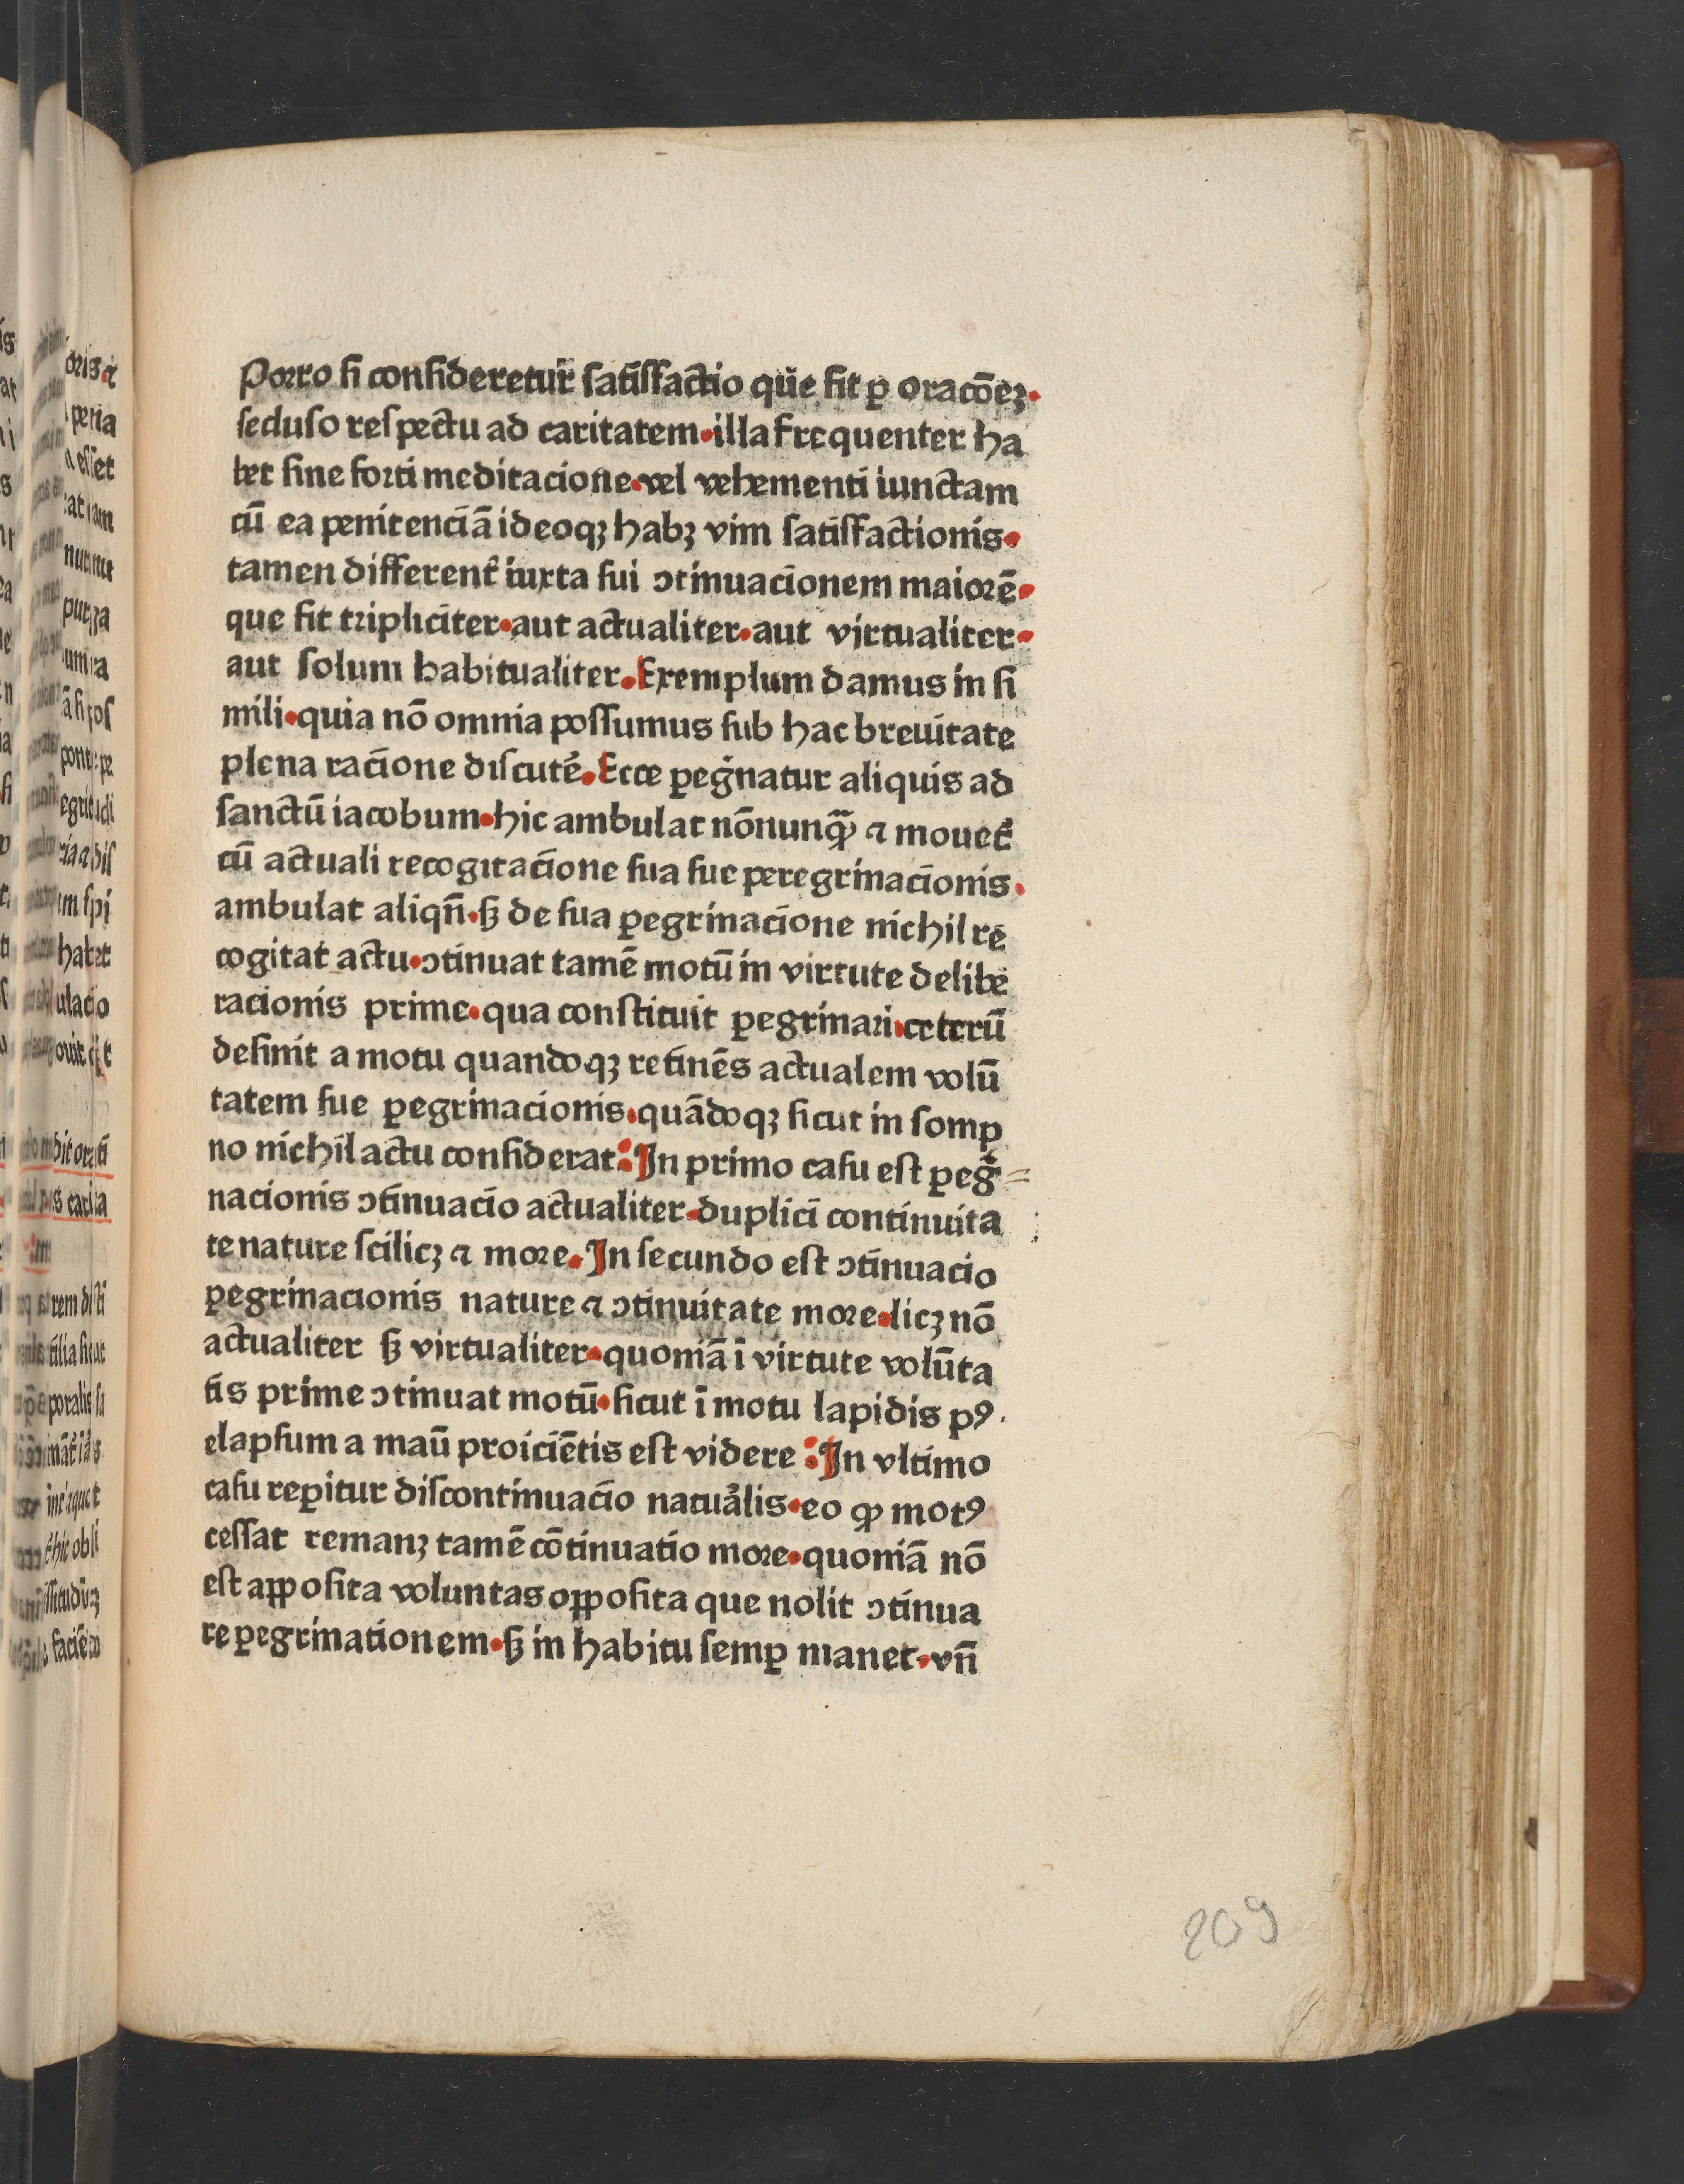 Porro ſi conſideretur̃ ſatiſſactio qūe fit ꝑ oracōeꝫ.
ſecluſo reſpectu ad caritatem.illa frequenter ha
bet ſine forti meditacione.vel vehementi iunctam
cū ea penitenciā ideoqꝫ habꝫ vim ſatiſfactionis.
tamen different̃ iuxta ſui ↄtinuacionem maiorē.
que fit tripliciter.aut actualiter.aut virtualiter.
aut ſolum habitualiter.Exemplum damus in ſi
mili.quia nō omnia poſſumus ſub hac breuitate
plena racione diſcutẽ.Ecce ꝑeg̃natur aliquis ad
ſanctū iacobum.hic ambulat nōnunqꝫ̃ ⁊ mouet̃
cū actuali recogitacione ſua ſue peregrinacionis.
ambulat aliqn̄.ſꝫ de ſua ꝑegrinacione nichil re
cogitat actu.ↄtinuat tamē motū in virtute delibe
racionis prime.qua conſtituit ꝑegrinari.ceterū
deſinit a motu quandoqꝫ retinēs actualem volū
tatem ſue ꝑegrinacionis.quādoqꝫ ſicut in ſomp
no nichil actu conſiderat:In primo caſu eſt ꝑeg̃=
nacionis ↄtinuacio actualiter.duplici continuita
te nature ſcilicꝫ ⁊ more.In ſecundo eſt ↄtinuacio
ꝑegrinacionis nature ⁊ ↄtinuitate more.licꝫ nō
actualiter ſꝫ virtualiter.quoniā ī virtute volūta
tis prime ↄtinuat motū.ſicut ī motu lapidis pꝰ.
elapſum a maū proiciētis eſt videre :In vltimo
caſu reꝑitur diſcontinuacio natuãlis.eo ꝙ motꝰ
ceſſat remanꝫ tamē cōtinuatio more.quoniā nō
eſt appoſita voluntas oppoſita que nolit ↄtinua
re ꝑegrinationem.ſꝫ in habitu ſemꝑ manet.vn̄
209